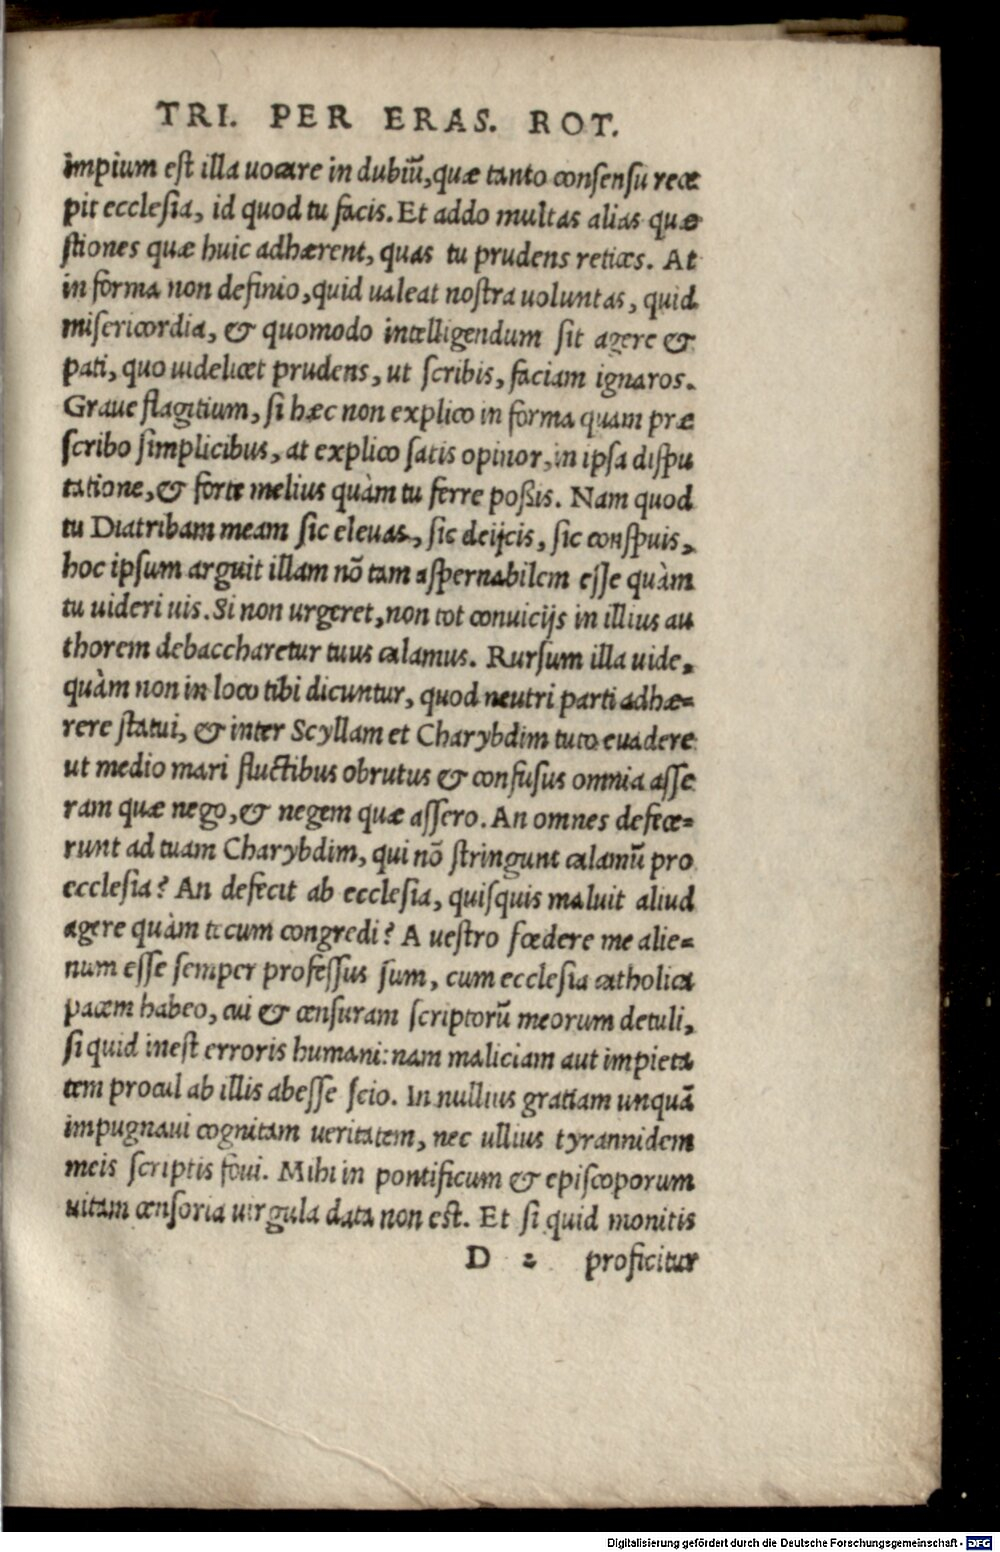 TRI. PER ERAS. ROT.
impium est illa uocare in dubiũ, quæ tanto consensu rece
pit ecclesia, id quod tu facis. Et addo multas alias quæ
stiones quæ huic adhærent, quas tu prudens retices. At
in forma non definio, quid ualeat nostra uoluntas, quid
misericordia, & quomodo intelligendum sit agere &
pati, quo uidelicet prudens, ut scribis, faciam ignaros.
Graue flagitium, si hæc non explico in forma quam præ
scribo simplicibus, at explico satis opinor, in ipsa dispu
tatione, & forte melius quàm tu ferre possis. Nam quod
tu Diatribam meam sic eleuas, sic deijcis, sic conspuis,
hoc ipsum arguit illam nõ tam aspernabilem esse quàm
tu uideri uis. Si non urgeret, non tot conuicijs in illius au
thorem debaccharetur tuus calamus. Rursum illa uide,
quàm non in loco tibi dicuntur, quod neutri parti adhæ=
rere statui, & inter Scyllam et Charybdim tuto euadere
ut medio mari fluctibus obrutus & confusus omnia asse
ram quæ nego, & negem quæ assero. An omnes defece=
runt ad tuam Charybdim, qui nõ stringunt calamũ pro
ecclesia? An defecit ab ecclesia, quisquis maluit aliud
agere quàm tecum congredi? A uestro fœdere me alie=
num esse semper professus sum, cum ecclesia catholica
pacem habeo, cui & censuram scriptorũ meorum detuli,
si quid inest erroris humani: nam maliciam aut impieta
tem procul ab illis abesse scio. In nullius gratiam unquã
impugnaui cognitam ueritatem, nec ullius tyrannidem
meis scriptis foui. Mihi in pontificum & episcoporum
uitam censoria uirgula data non est. Et si quid monitis
D 2 proficitur
Digitalisierung gefördert durch die Deutsche Forschungsgemeinschaft - DFG